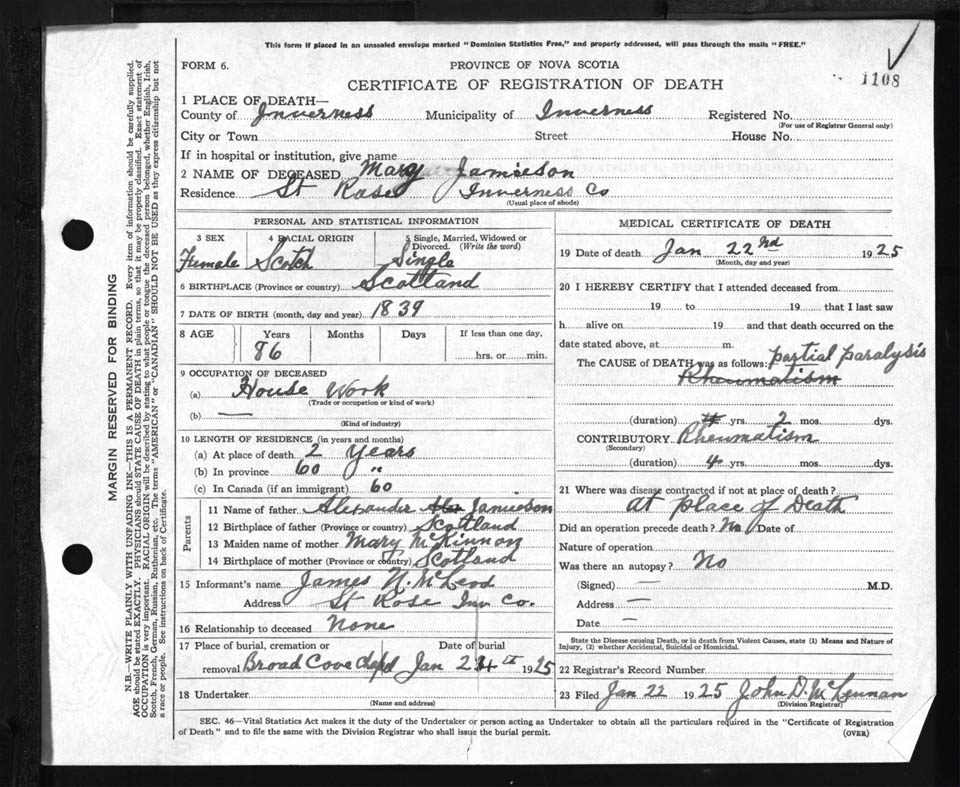 This form if placed in an unsealed envelope marked "Dominion Statistics Free," and properly addressed, will pass through the mails "FREE."
FORM 6.
PROVINCE OF NOVA SCOTIA
CERTIFICATE OF REGISTRATION OF DEATH
1108
1 PLACE OF DEATH—
County of Inverness Municipality of Inverness Registered No.
(For use of Registrar General only)
City or Town Street House No.
If in hospital or institution, give name
2 NAME OF DECEASED Mary Jamieson
Residence St Rose Inverness Co
(Usual place of abode)
PERSONAL AND STATISTICAL INFORMATION
3 SEX 4 RACIAL ORIGIN 5 Single, Married, Widowed or Divorced. (Write the word)
Female Scotch Single
6 BIRTHPLACE (Province or country) Scotland
7 DATE OF BIRTH (month, day and year) 1839
8 AGE Years Months Days If less than one day,
86 hrs. or min.
9 OCCUPATION OF DECEASED
(a) House Work
(Trade or occupation or kind of work)
(b) —
(Kind of industry)
10 LENGTH OF RESIDENCE (in years and months)
(a) At place of death 2 Years
(b) In province 60 "
(c) In Canada (if an immigrant) 60
Parents
11 Name of father Alexander Jamieson
12 Birthplace of father (Province or country) Scotland
13 Maiden name of mother Mary McKinnon
14 Birthplace of mother (Province or country) Scotland
15 Informant's name James N. McLeod
Address St Rose Inv Co.
16 Relationship to deceased None
17 Place of burial, cremation or Date of burial
removal Broad Cove Chapel Jan 24 1925
18 Undertaker
(Name and address)
MEDICAL CERTIFICATE OF DEATH
19 Date of death Jan 22nd 1925
(Month, day and year)
20 I HEREBY CERTIFY that I attended deceased from
19 to 19 that I last saw
h alive on 19 and that death occurred on the
date stated above, at m.
The CAUSE of DEATH was as follows: partial paralysis
Rheumatism
(duration) yrs. 2 mos. dys.
CONTRIBUTORY Rheumatism
(Secondary)
(duration) 4 yrs. mos. dys.
21 Where was disease contracted if not at place of death?
At place of Death
Did an operation precede death? No Date of
Nature of operation
Was there an autopsy? No
(Signed) — M.D.
Address —
Date —
State the Disease causing Death, or in death from Violent Causes, state (1) Means and Nature of
Injury, (2) whether Accidental, Suicidal or Homicidal.
22 Registrar's Record Number
23 Filed Jan 22 1925 John D. McLennan
(Division Registrar)
SEC. 46—Vital Statistics Act makes it the duty of the Undertaker or person acting as Undertaker to obtain all the particulars required in the "Certificate of Registration
of Death" and to file the same with the Division Registrar who shall issue the burial permit. (OVER)
MARGIN RESERVED FOR BINDING
N.B.—WRITE PLAINLY WITH UNFADING INK—THIS IS A PERMANENT RECORD. Every item of information should be carefully supplied.
AGE should be stated EXACTLY. PHYSICIANS should STATE CAUSE OF DEATH in plain terms, so that it may be properly classified. Exact statement of
OCCUPATION is very important. RACIAL ORIGIN will be described by stating to what people or tongue the deceased person belonged, whether English, Irish,
Scotch, French, German, Russian, Ruthenian, etc. The terms "AMERICAN" or "CANADIAN" SHOULD NOT BE USED as they express citizenship but not
a race or people. See instructions on back of Certificate.